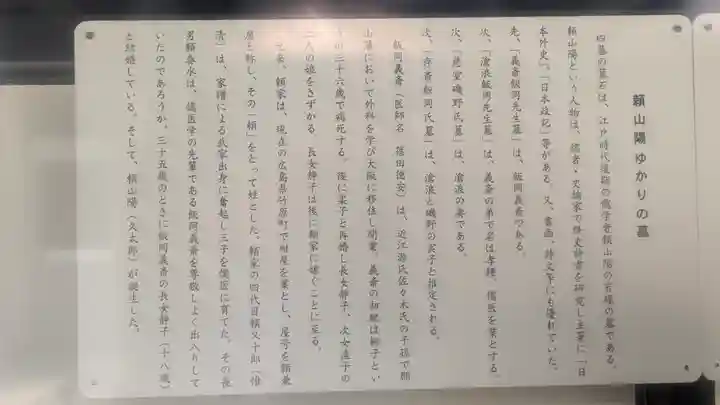 頼山陽ゆかりの墓
四基の墓石は、江戸時代後期の儒学者頼山陽の首縁の墓である。
頼山陽という人物は、儒者・史論家で修史詩書を研究し主著に「日
本外史」「日本政記」等がある。又、書画、詩文等にも優れていた。
先、「義斎飯岡先生墓」は、飯岡義斎である。
次、「滄浪飯岡先生墓」は、義斎の弟で名は孝釋、儒医を業とする。
次、「慈室磯野氏墓」は、滄浪の妻である。
次、「存斎飯岡氏墓」は、滄浪と磯野の実子と推定される。
飯岡義斎（医師名 篠田徳安）は、近江源氏佐々木氏の子孫で願
山陽において外科を学び大阪に移住し開業。義斎の初娘は柳子とい
うの二十六歳で病死する。後に栄子と再婚し長女静子、次女直子の
二人の娘をさずかる。長女静子は後に頼家に嫁ぐことに至る。
元来、頼家は、現在の広島県竹原町で紺屋を業とし、屋号を頼兼
屋と称し、その「頼」をとって姓とした。頼家の四代目頼又十郎（惟
清）は、家譜による武家出身に奮起し三子を儒医に育てた。その長
男頼春水は、儒医学の先輩である飯岡義斎を尊敬しよく出入りして
いたのであろうか。三十五歳のときに飯岡義斎の長女静子（十八歳）
と結婚している。そして、頼山陽（久太郎）が誕生した。